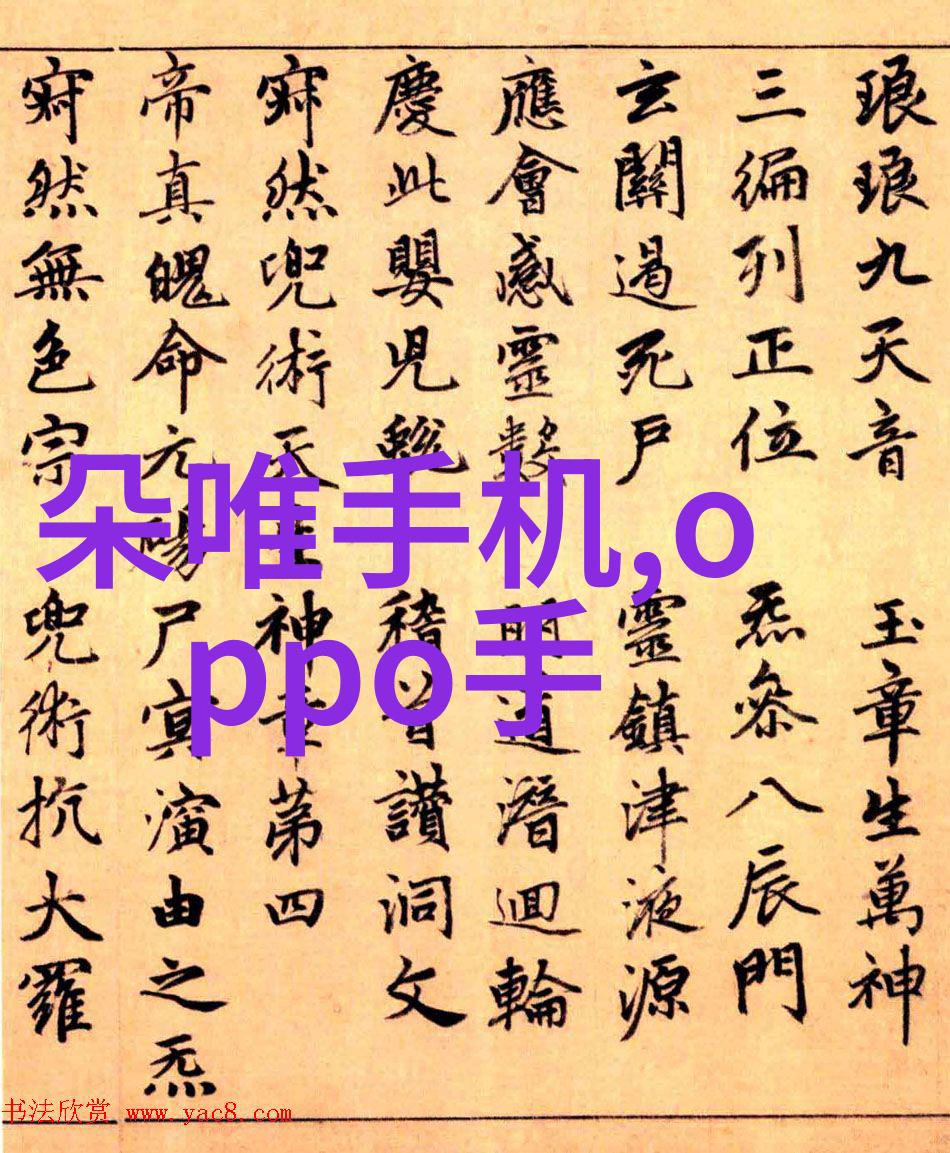 琅琅九天音 玉章生萬神
三編列正位 炁参八辰門
玄關過死戶 靈鎮津液源
應會感靈數 明道潛迴輪
慶此嬰兒蛻 稽首讃洞文
寂然兜術天王神章第四
帝真魄命元陽尸冥演由之炁
寂然無色宗 兜術抗大羅
朵唯手机,o
ppo手
书法欣赏 www.yac8.com